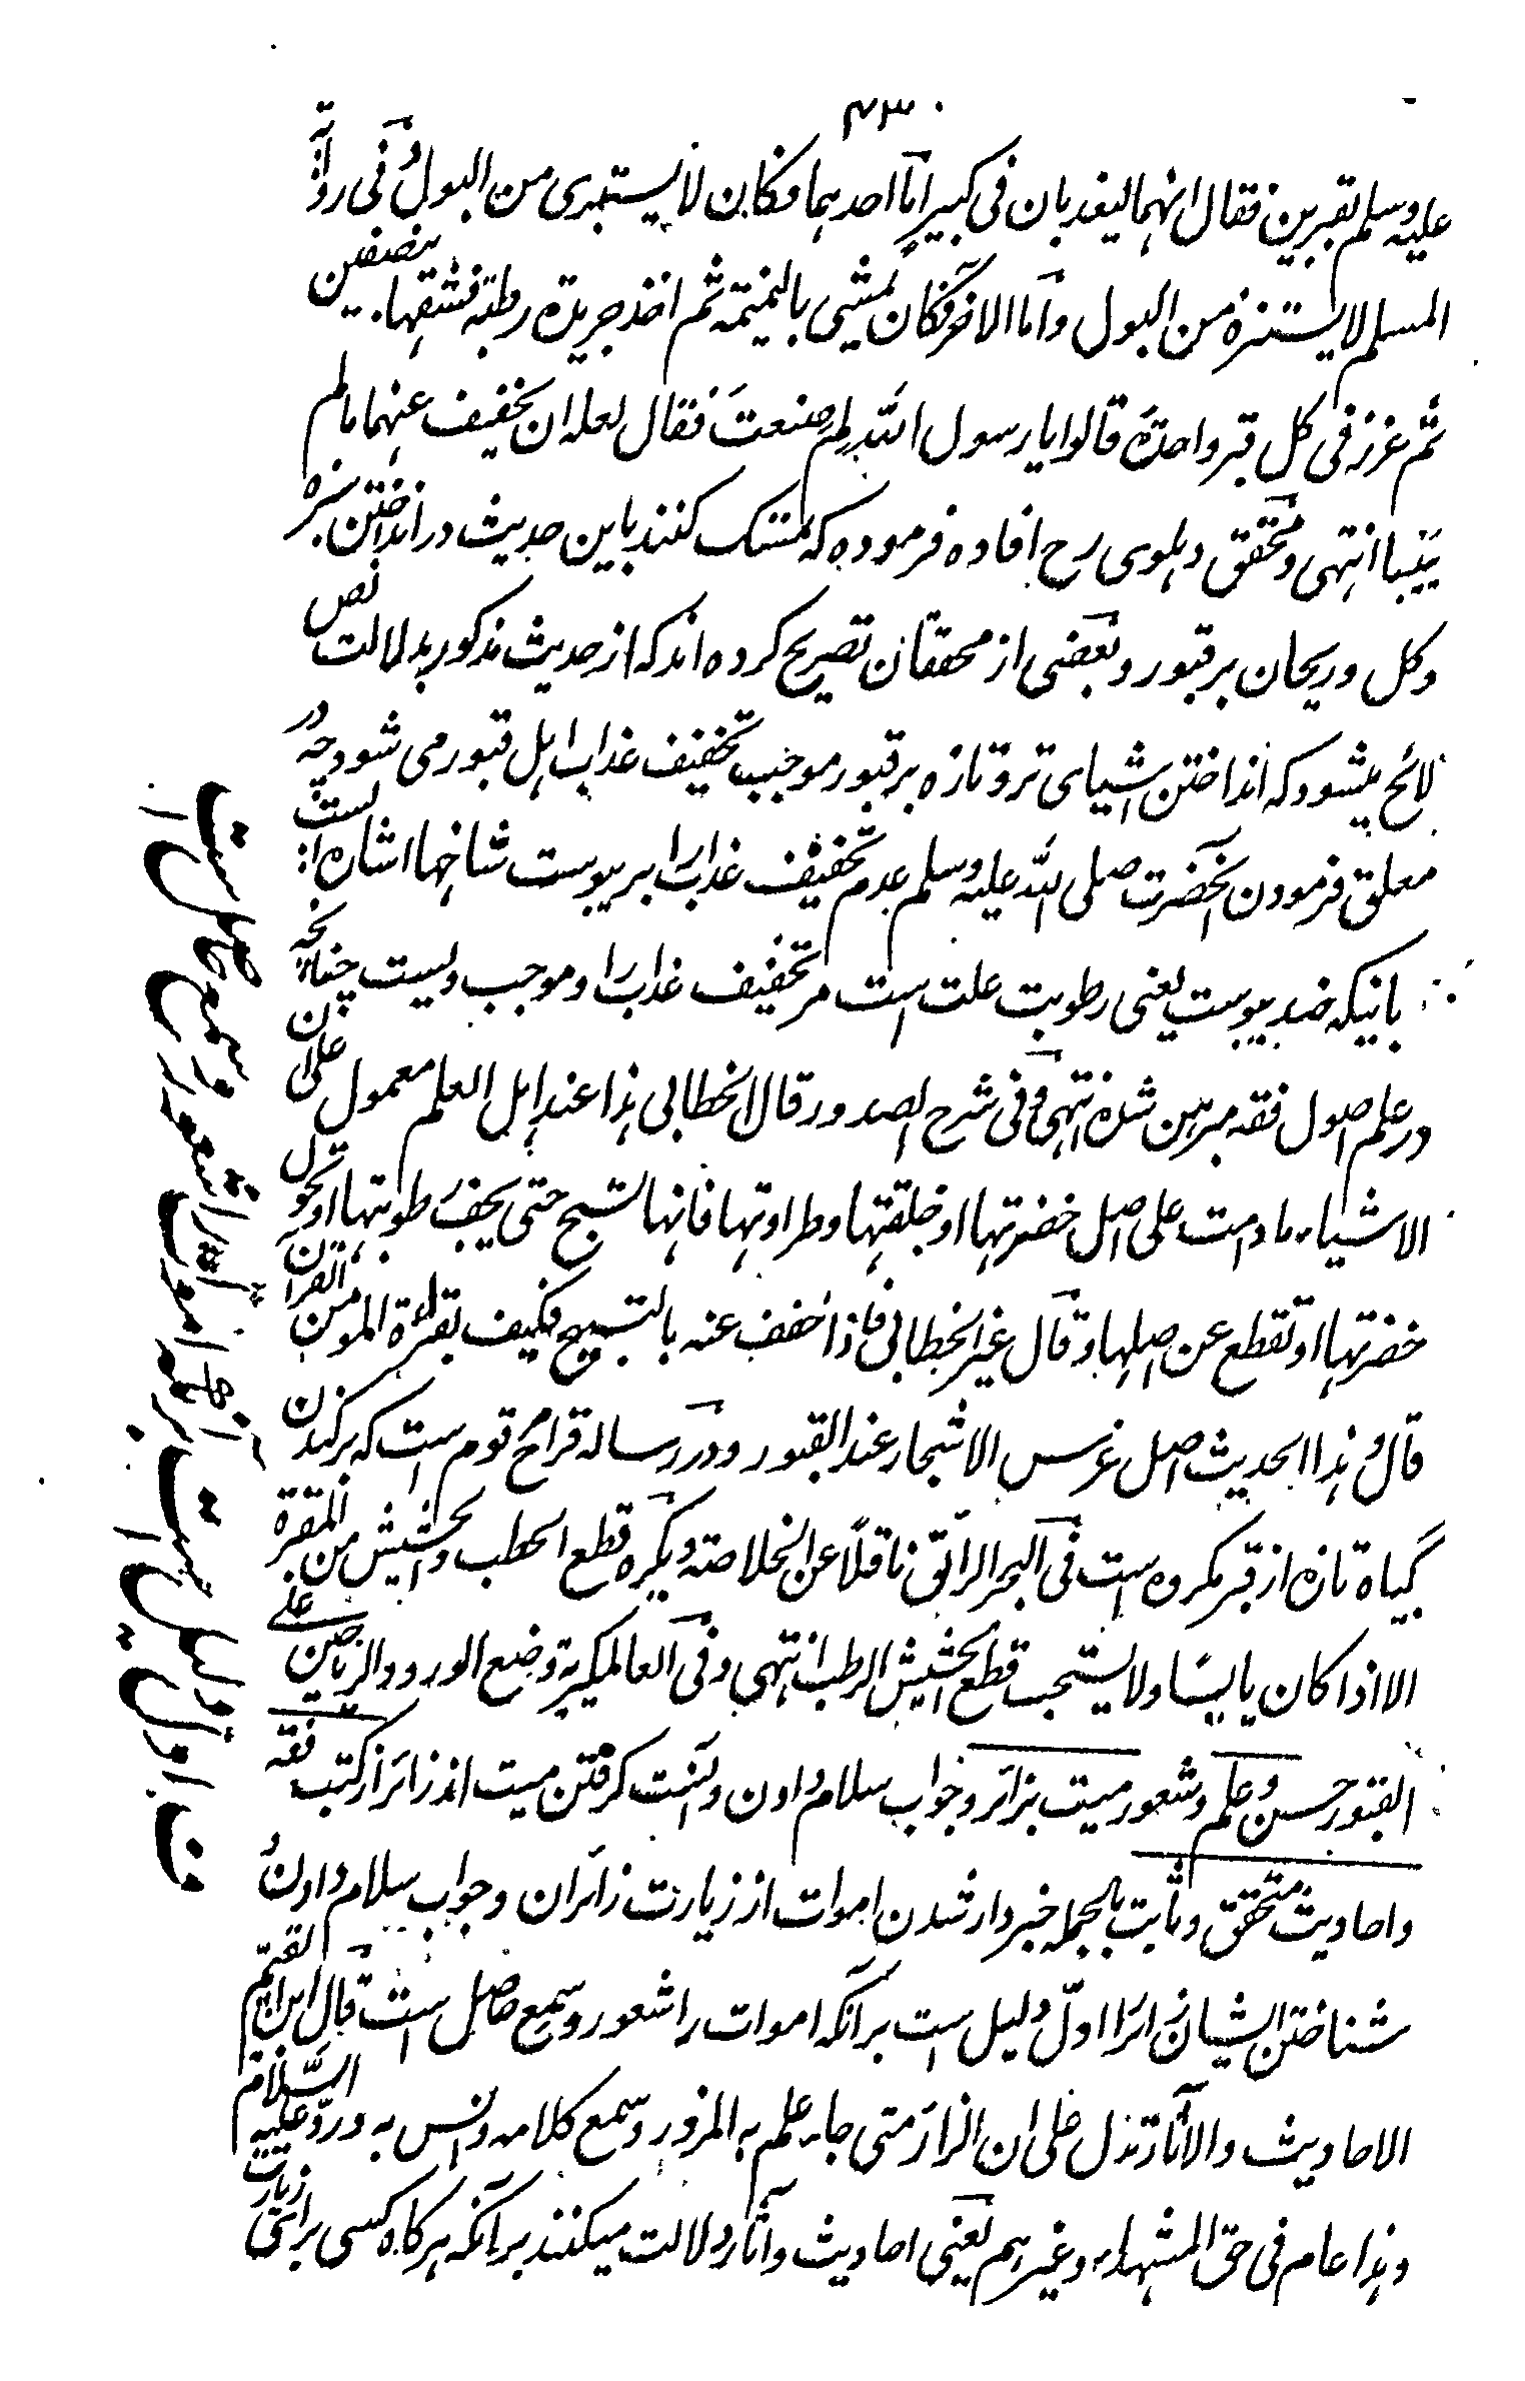 ۴۳۰
علیه وسلم بقبرین فقال انهما لیعذبان فی کبیر اما احدهما فکان لا یستبری من البول وفی روایة
المسلم لا یستنزه من البول واما الاخر فکان یمشی بالنمیمة ثم اخذ جریدة رطبة فشقها بنصفین
ثم غرز فی کل قبر واحدة قالوا یا رسول الله لم صنعت فقال لعله ان یخفف عنهما ما لم
ییبسا انتهی ومحقق دهلوی رح افاده فرموده که تمسک کنند باین حدیث در انداختن سبزه
وکل وریحان بر قبور وبعضی از محققان تصریح کرده اند که از حدیث مذکور بدلالت نص
لائح میشود که انداختن اشیای تر وتازه بر قبور موجب تخفیف عذاب اهل قبور می شود چه در
معلق فرمودن آنحضرت صلی الله علیه وسلم عدم تخفیف عذاب را بر یبوست شاخها اشاره است
باینکه ضد یبوست یعنی رطوبت علت است مر تخفیف عذاب را وموجب ولیست چنانچه
در علم اصول فقه مبرهن شده انتهی وفی شرح الصدور قال الخطابی هذا عند اهل العلم معمول علی ان
الاشیاء ما دامت علی اصل خضرتها او خلقتها وطراوتها فانها تسبح حتی یجف رطوبتها او تحول
خضرتها او تقطع عن اصلها وقال غیر الخطابی فاذا خفف عنه بالتسبیح فکیف بقرائة المومن القرآن
قال وهذا الحدیث اصل غرس الاشجار عند القبور ودر رساله قراح قوم است که برکندن
گیاه تازه از قبر مکروه است فی البحر الرائق ناقلا عن الخلاصة ویکره قطع الحطب والحشیش من المقبرة
الا اذا کان یابسا ولا یستحب قطع الحشیش الرطب انتهی وفی العالمکیریة وضع الورود والریاحین علی
القبور حسن وعلم وشعور میت بزائر وجواب سلام دادن وانست کرفتن میت از زائر از کتب فقه
واحادیث متحقق وثابت بالجمله خبردار شدن اموات از زیارت زائران وجواب سلام دادن و
شناختن ایشان زائر را اول دلیل است بر آنکه اموات را شعور وسمع حاصل است قال ابن القیم
الاحادیث والآثار تدل علی ان الزائر متی جاء علم به المزور وسمع کلامه وانس به ورد علیه السلام
وهذا عام فی حق الشهداء وغیرهم یعنی احادیث وآثار دلالت میکنند بر آنکه هرکاه کسی برای زیارت
ف اول دلیل است بر آنکه اموات را شعور وسمع حاصل است